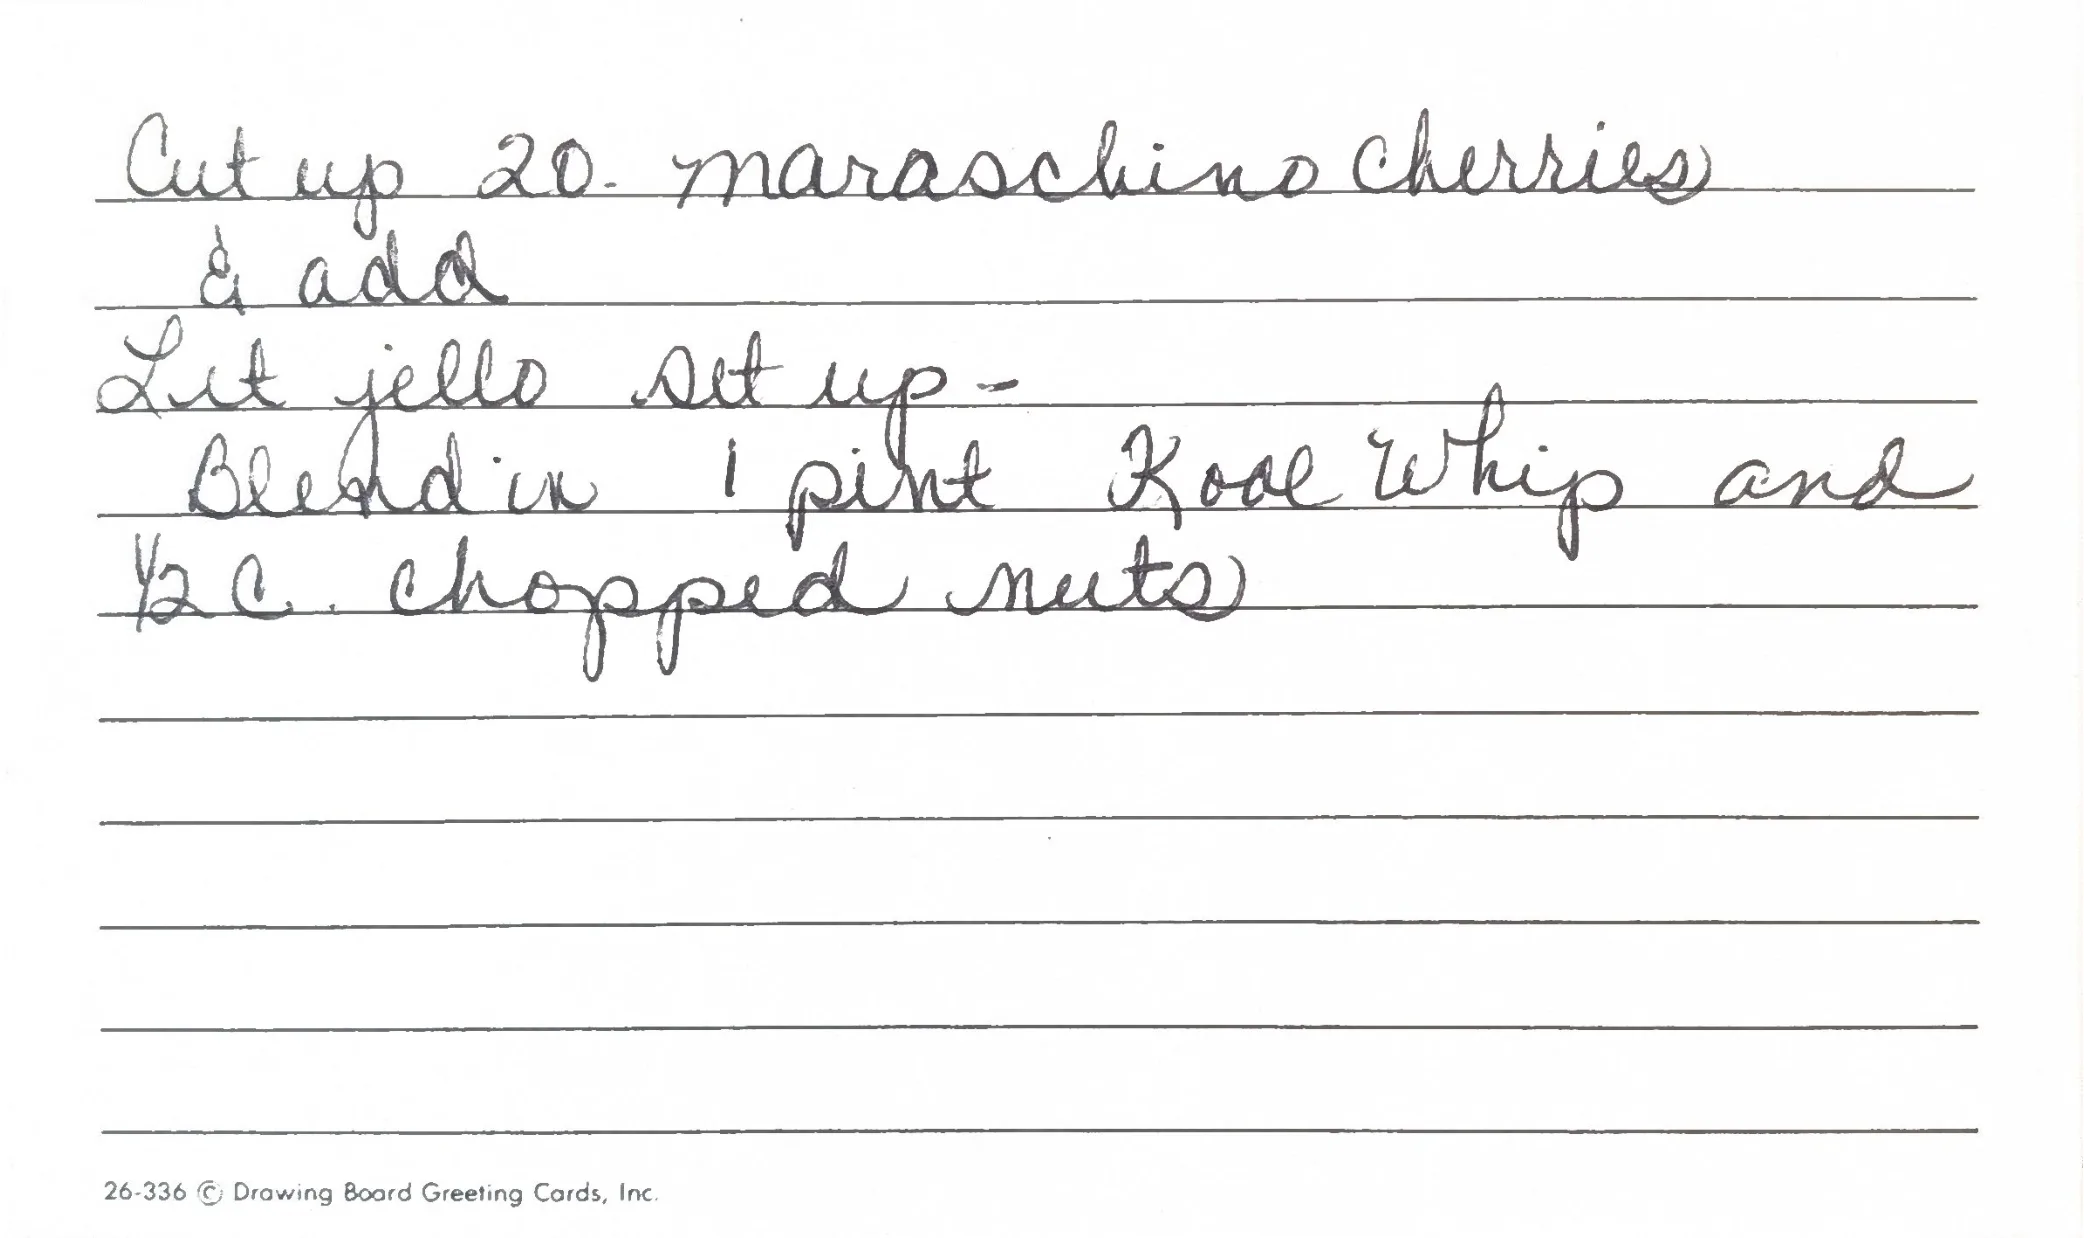 Cut up 20. maraschino cherries
& add
Let jello set up -
Blend in 1 pint Kool Whip and
1/2 C. chopped nuts
26-336 © Drawing Board Greeting Cards, Inc.